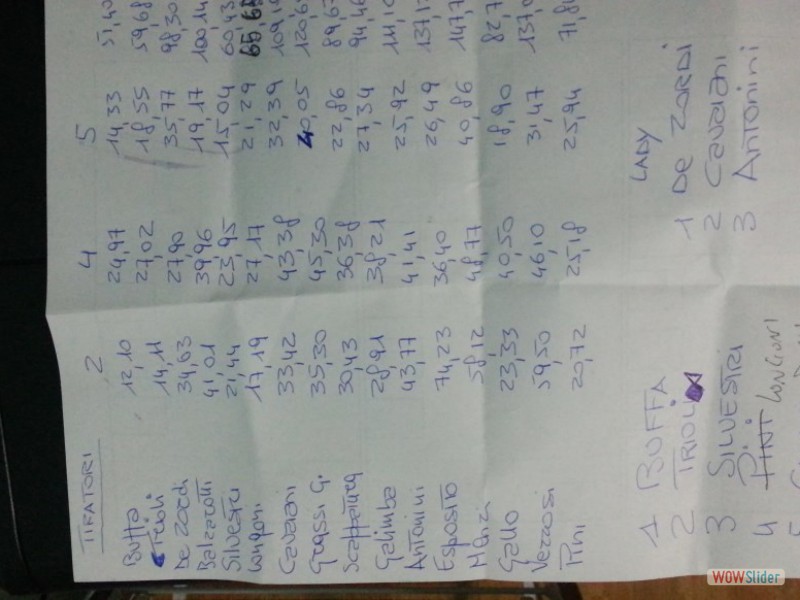 TIRATORI 2 4 5
Buffa 12,10 24,97 14,33 51,40
Trioli 14,11 27,02 18,55 59,68
De Zordi 34,63 27,90 35,77 98,30
Balzarotti 41,01 39,96 19,17 100,14
Silvestri 21,44 23,95 15,04 60,43
Longoni 17,19 27,17 21,29 65,65
Cavaiani 33,42 43,38 32,39
Grassi G. 35,30 45,30 40,05
Scappatura 30,43 36,38 22,86
Galimba 28,91 38,21 27,34
Antonini 43,77 41,41 25,92
Esposito 74,23 36,40 26,49
Monzi 58,12 48,77 40,86
Gallo 23,33 40,50 18,90
Vezzosi 59,50 46,10 31,47
Pini 20,72 25,18 25,94 71,84
1 BUFFA
2 TRIOLI
3 SILVESTRI
4 PINI LONGONI
5
LADY
1 De ZORDI
2 Cavaiani
3 Antonini
WOWSlider